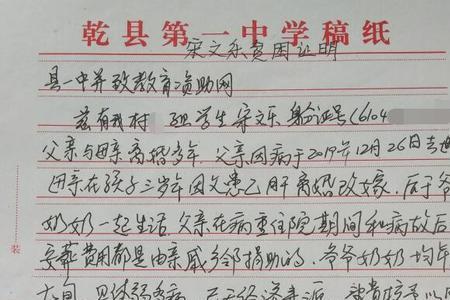 乾县第一中学稿纸
宋文乐贫困证明
县一中并致教育资助网
兹有我村 组学生宋文乐 身份证号(6104
父亲与母亲离婚多年,父亲因病于2019年12月26日去世
母亲在孩子三岁年因父患乙肝离婚改嫁,后于爷
奶奶一起生活,父亲在病重住院期间和病故后
安葬费用都是由亲戚乡邻捐助的,爷爷奶奶均年
七旬 体弱多病
装